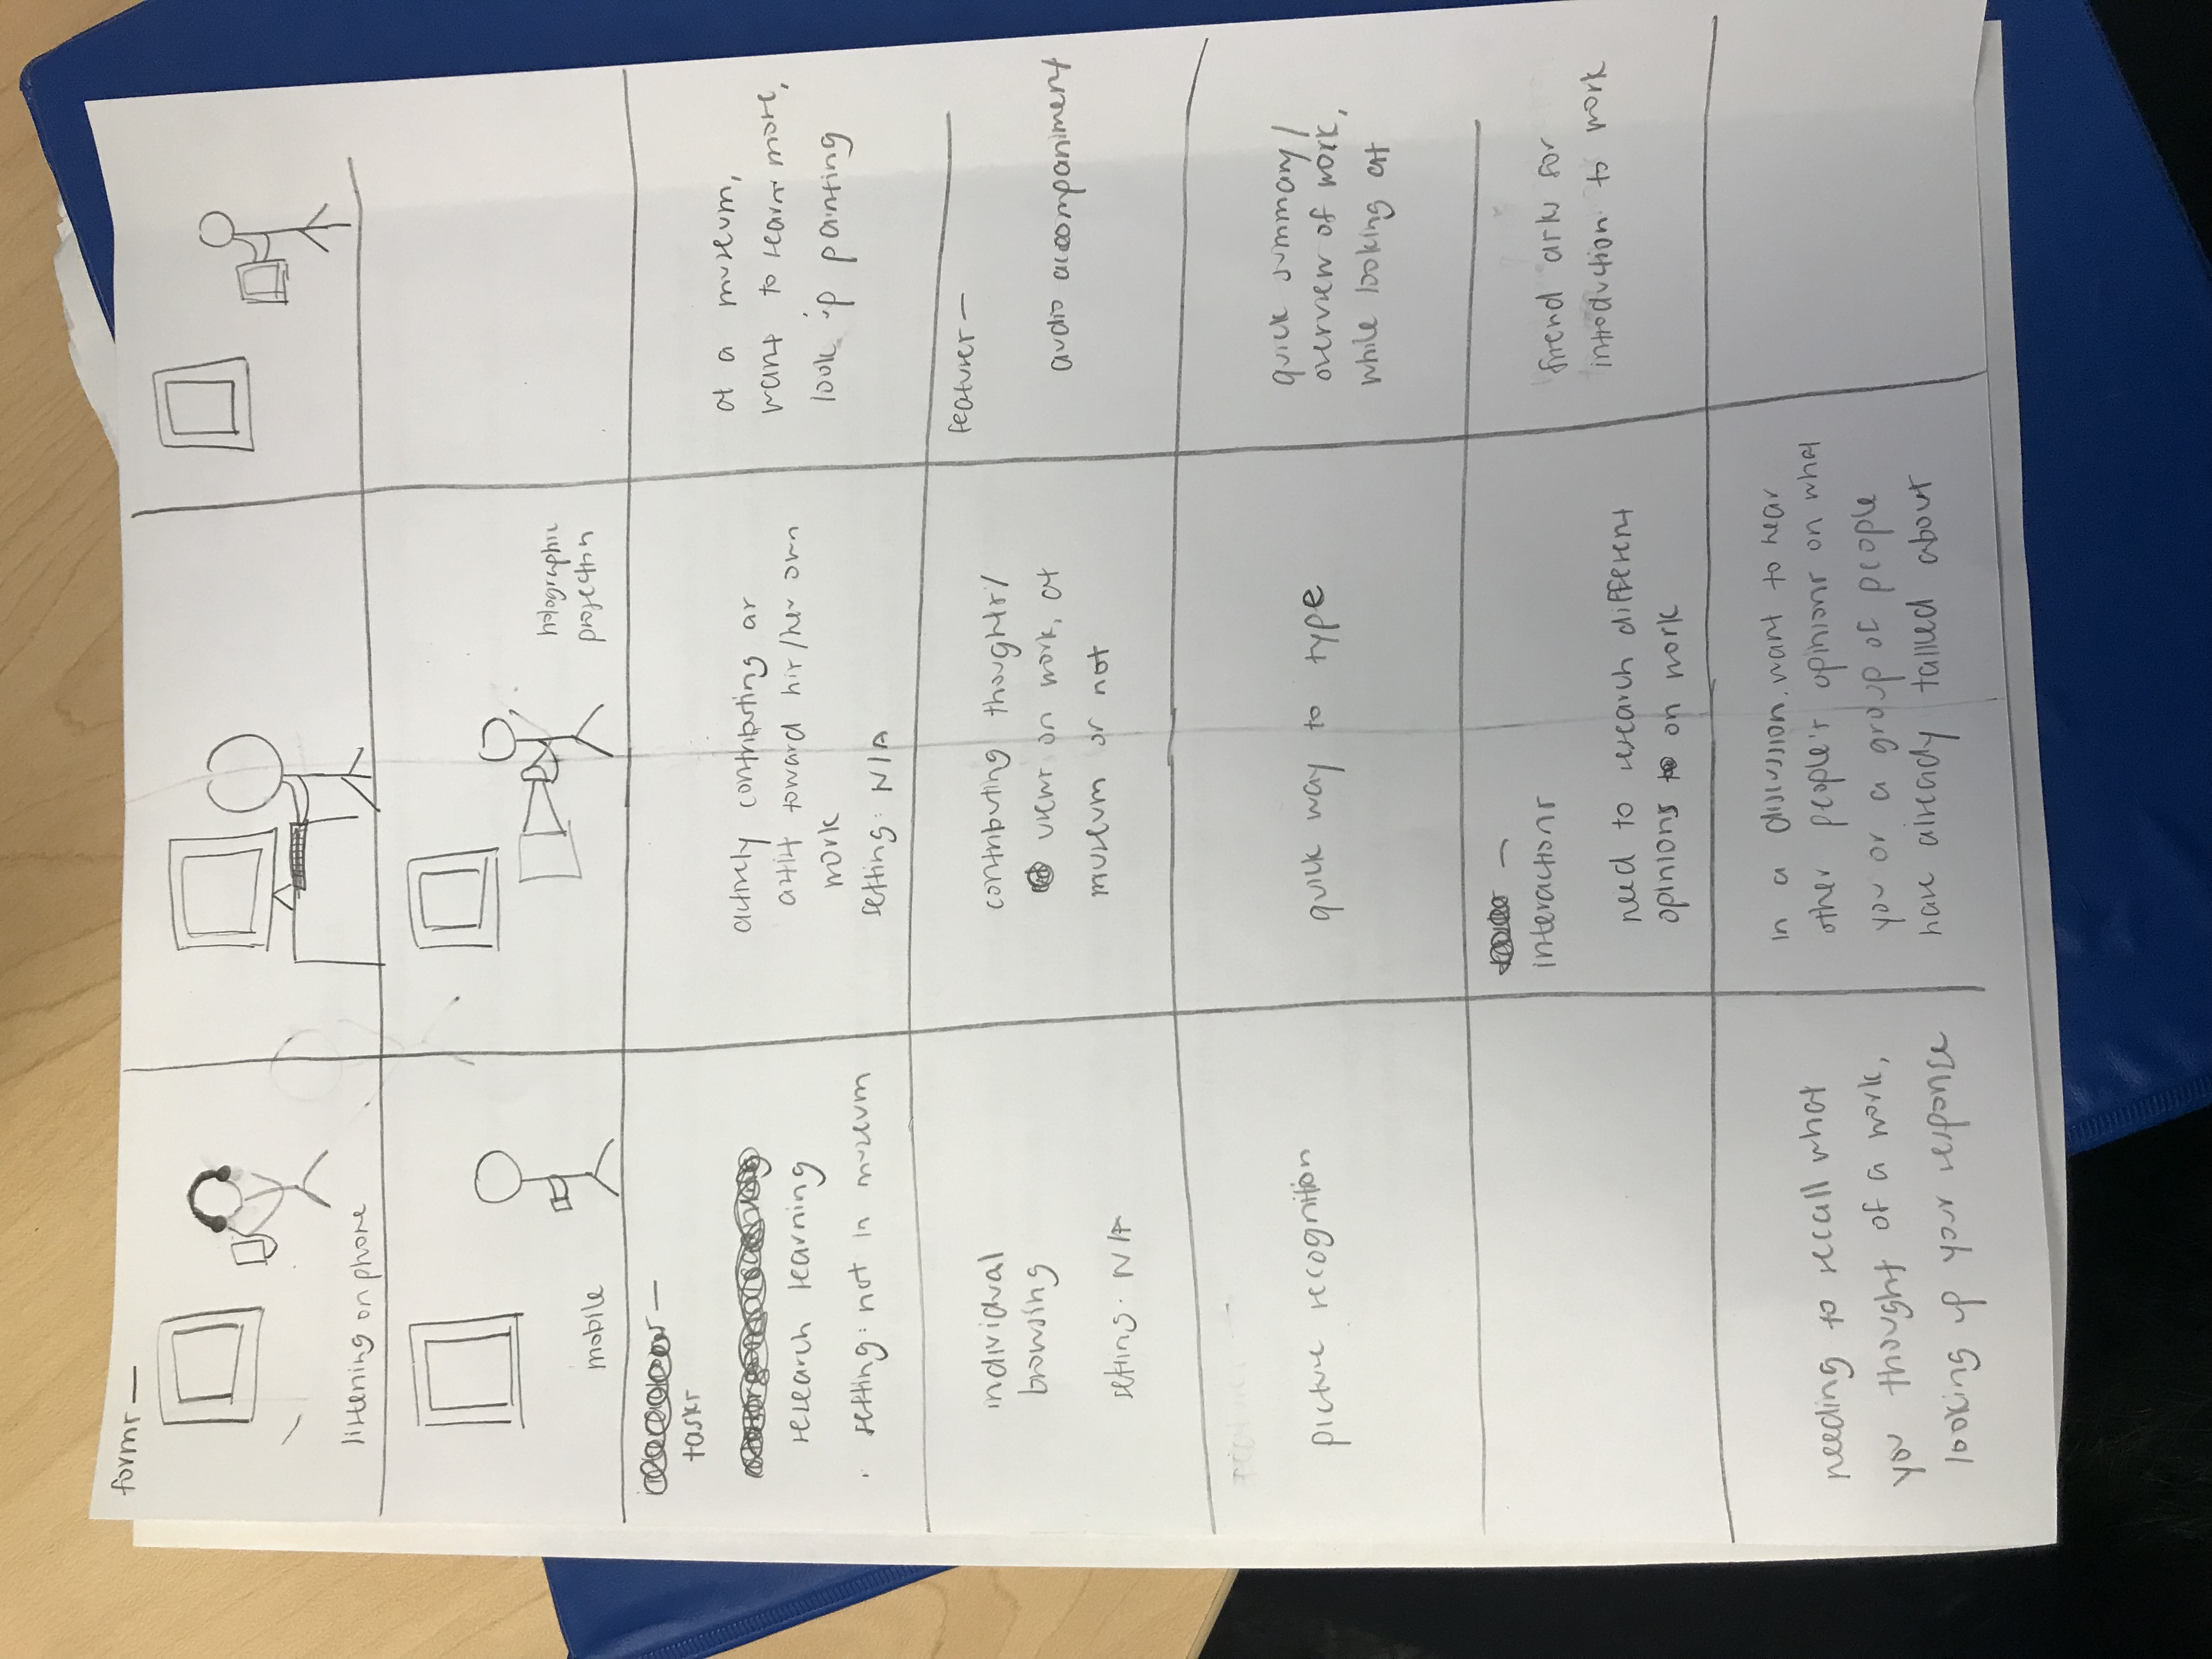 forms —
listening on phone
mobile
holographic
projection
—
tasks
research learning
setting: not in museum
actively contributing as
artist toward his/her own
work
setting: N/A
at a museum,
want to learn more,
look up painting
individual
browsing
setting: N/A
contributing thoughts/
views on work, at
museum or not
features —
audio accompaniment
features —
picture recognition
quick way to type
quick summary/
overview of work,
while looking at
—
interactions
need to research different
opinions on work
friend asks for
introduction to work
needing to recall what
you thought of a work,
looking up your response
in a discussion, want to hear
other people's opinions on what
you or a group of people
have already talked about